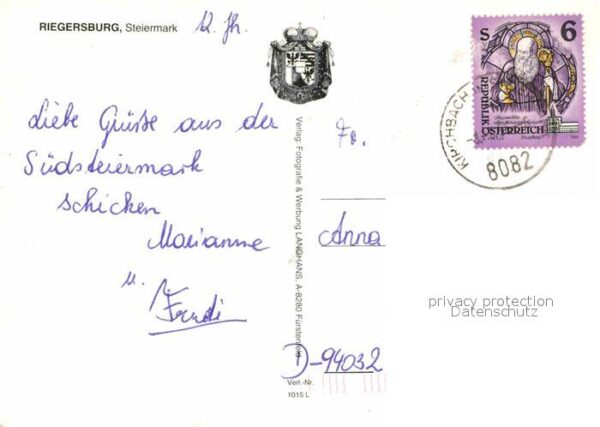 RIEGERSBURG, Steiermark
Liebe Grüße aus der
Südsteiermark
schicken
Marianne
u.
Verlag: Fotografie & Werbung LANGHANS, A-8280 Fürstenfeld
Verl.-Nr.
1015 L
S 6
REPUBLIK
ÖSTERREICH
KIRCHBACH
8082
Fa.
Anna
D-94032
privacy protection
Datenschutz